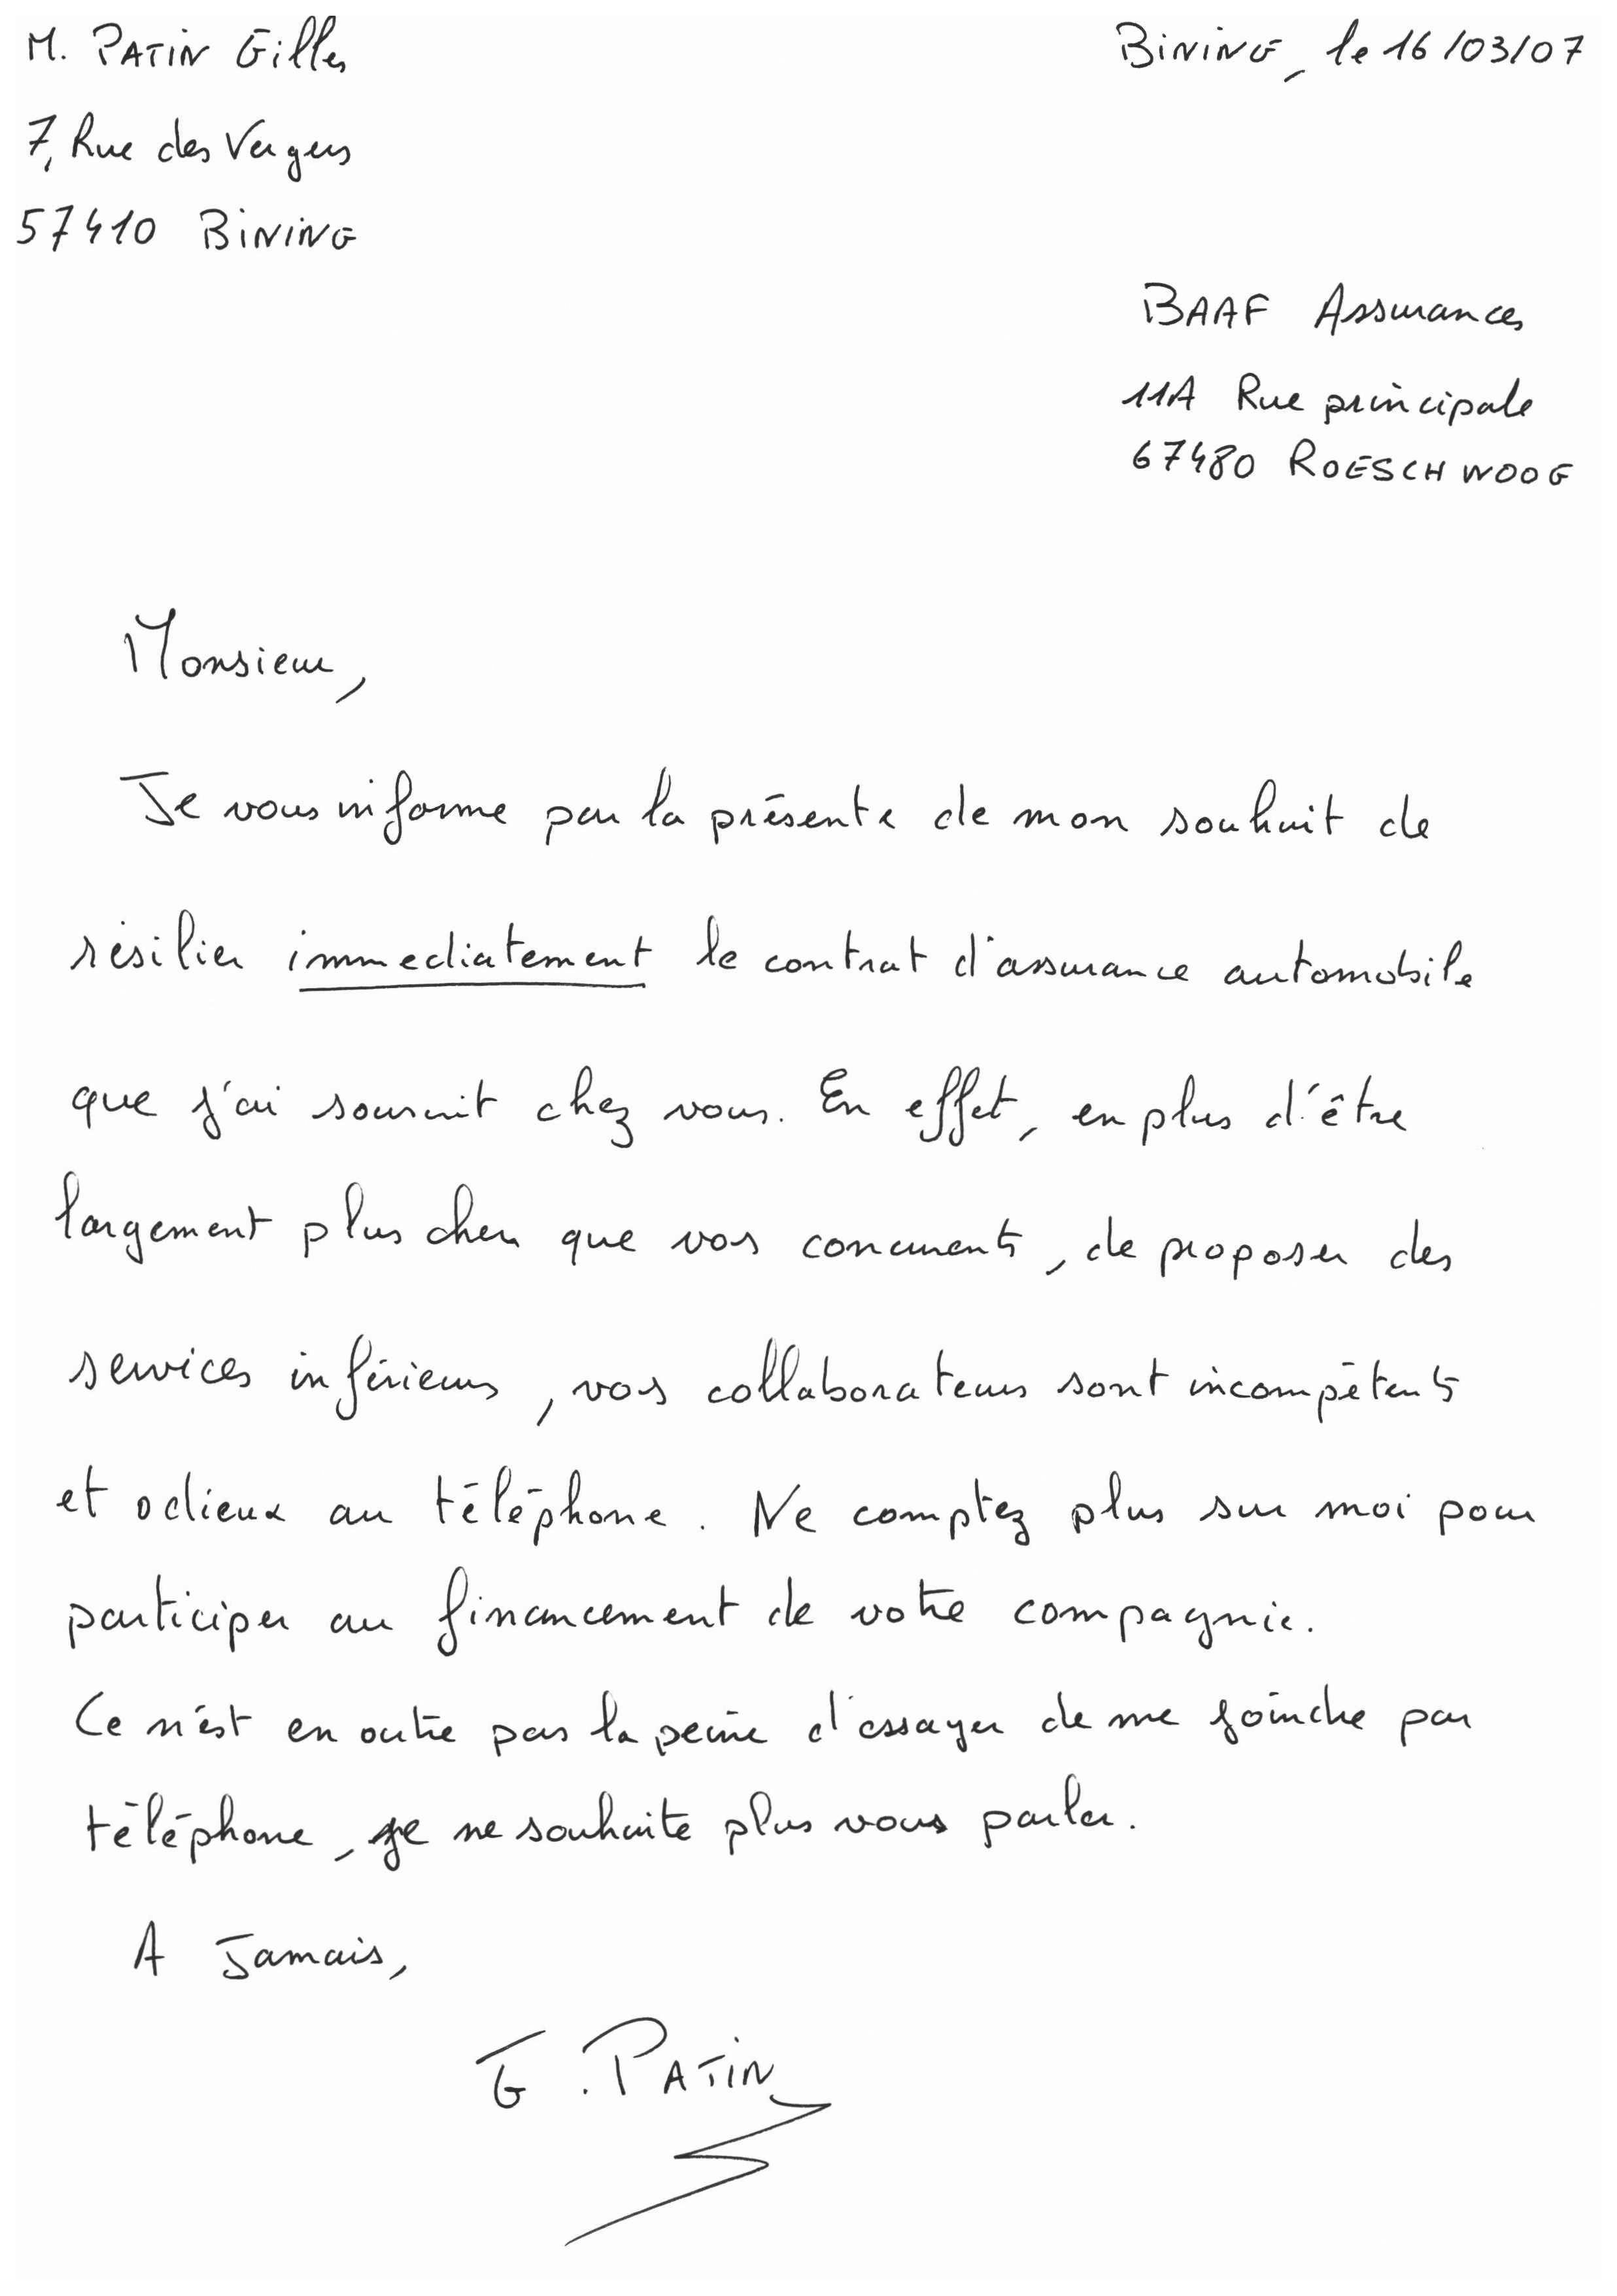 M. PATIN Gilles
Bining, le 16/03/07
7, Rue des Vergers
57410 BINING
BAAF Assurances
11A Rue principale
67480 ROESCHWOOG
Monsieur,
Je vous informe par la présente de mon souhait de
résilier immediatement le contrat d'assurance automobile
que j'ai souscrit chez vous. En effet, en plus d'être
largement plus cher que vos concurrents, de proposer des
services inférieurs, vos collaborateurs sont incompétents
et odieux au téléphone. Ne comptez plus sur moi pour
participer au financement de votre compagnie.
Ce n'est en outre pas la peine d'essayer de me joindre par
téléphone, je ne souhaite plus vous parler.
A Jamais,
G. PATIN